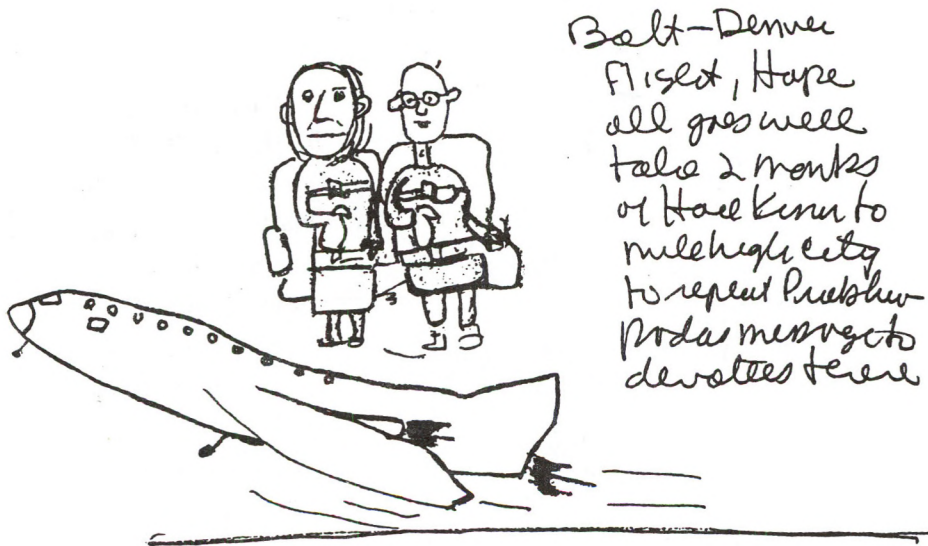 Balt–Denver
flight, Hope
all goes well
take 2 monks
of Hare Krsna to
mile high city
to repeat Prabhu-
padas message to
devotees there